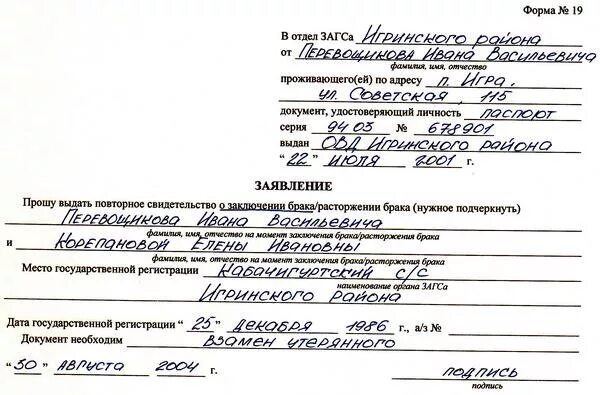 Форма № 19
В отдел ЗАГСа Игринского района
от Перевощикова Ивана Васильевича
фамилия, имя, отчество
проживающего(ей) по адресу п. Игра,
ул. Советская, 115
документ, удостоверяющий личность паспорт
серия 94 03 № 678901
выдан ОВД Игринского района
"22" июля 2001 г.
ЗАЯВЛЕНИЕ
Прошу выдать повторное свидетельство о заключении брака/расторжении брака (нужное подчеркнуть)
Перевощикова Ивана Васильевича
фамилия, имя, отчество на момент заключения брака/расторжения брака
и Корепановой Елены Ивановны
фамилия, имя, отчество на момент заключения брака/расторжения брака
Место государственной регистрации Кабачигуртский с/с
наименование органа ЗАГСа
Игринского района
Дата государственной регистрации "25" декабря 1986 г., а/з №
Документ необходим взамен утерянного
"30" августа 2004 г. подпись
подпись